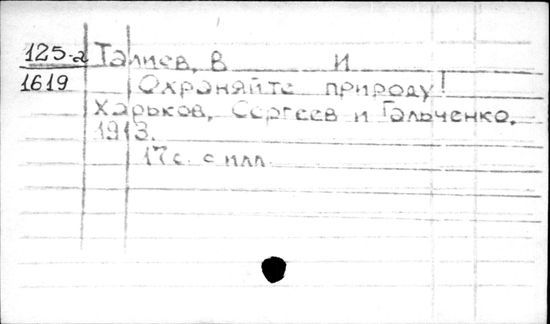 125-а Талиев, В И
1619 Охраняйте природу!
Харьков, Сергеев и Гальченко,
1913.
17 с. с илл.